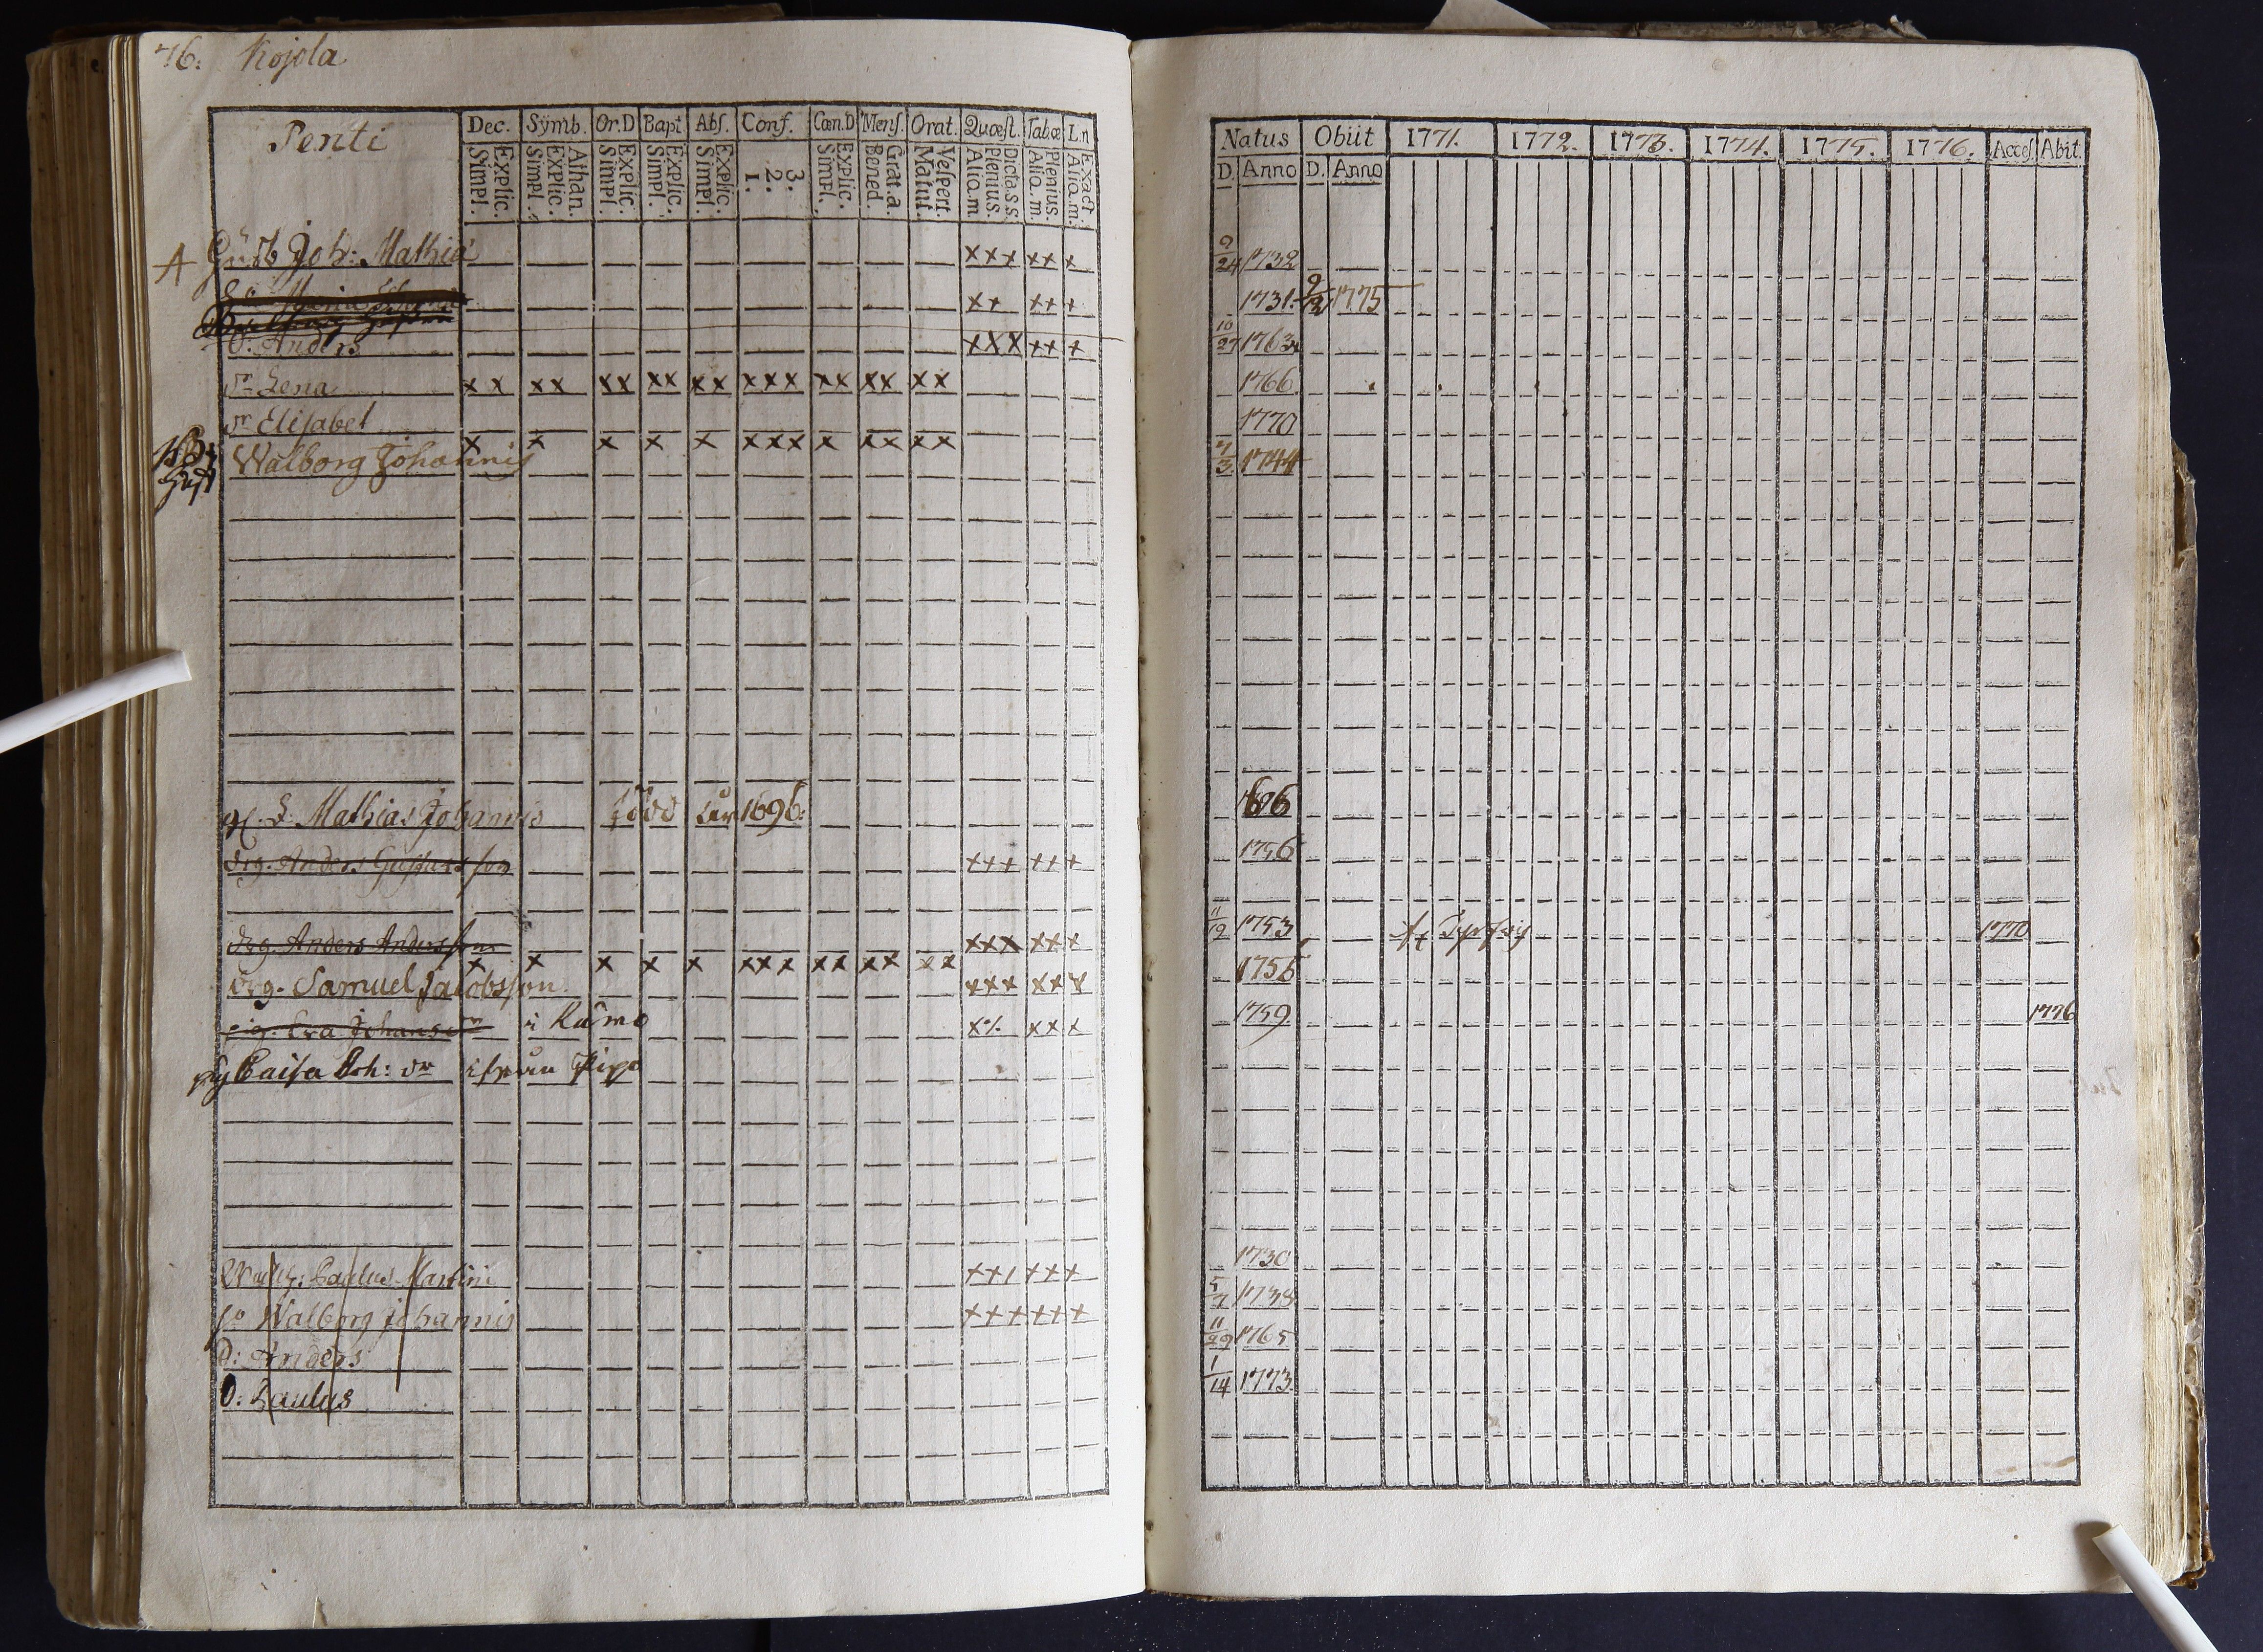 76: Kojola
Penti
Dec. Symb. Or.D Bapt. Abs. Conf. Cœn.D Mens. Orat. Quæst. Tabœ L.n
Explic. Simpl. Athan. Explic. Simpl. Explic. Simpl. Explic. Simpl. Explic. Simpl. 3. 2. 1. Explic. Simpl. Grat. a. Bened. Vespert. Matut. Dicta.s.s. Plenius. Alio.m. Plenius. Alio.m. Exact. Alio.m.
Natus Obiit 1771. 1772. 1773. 1774. 1775. 1776. Acces. Abit.
D. Anno D. Anno
A Joh: Mathiæ xxx xx x 9/24 1732
xx xx x 1731. 1775
Anders xxx xx x 10/27 1763
dr Lena xx xx xx xx xx xxx xx xx xx 1766.
dr Elisabet 1770
Walborg Johannis x x x x x xxx x xx xx 1744
Mathias Johannis född 1696: 1696
drg. Anders xxx xx x 1756
drg. Anders Andersson xxx xx x 11/12 1753 1770
drg. Samuel Jacobsson x x x x x xxx xx xx xx xxx xx x 1756
pig. Eva Johansdr i Kumo x xx x 1759. 1776
pig Caisa Joh: dr
Paulus Martini xxx xx x 1730
Walborg Johannis xxx xx x 5/7 1738
Anders 11/29 1765
Paulus 1/14 1773.